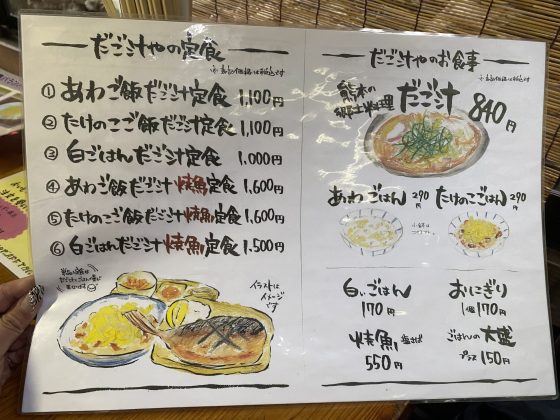 だご汁やの定食
① あわご飯だご汁定食 1,100円
② たけのこご飯だご汁定食 1,100円
③ 白ごはんだご汁定食 1,000円
④ あわご飯だご汁焼魚定食 1,600円
⑤ たけのこご飯だご汁焼魚定食 1,600円
⑥ 白ごはんだご汁焼魚定食 1,500円
イラストは
イメージ
です
だご汁やのお食事
熊本の
郷土料理
だご汁
840円
あわごはん 290円
たけのこごはん 290円
白いごはん
170円
おにぎり
1個 170円
焼魚 塩さば
550円
ごはんの大盛
プラス 150円